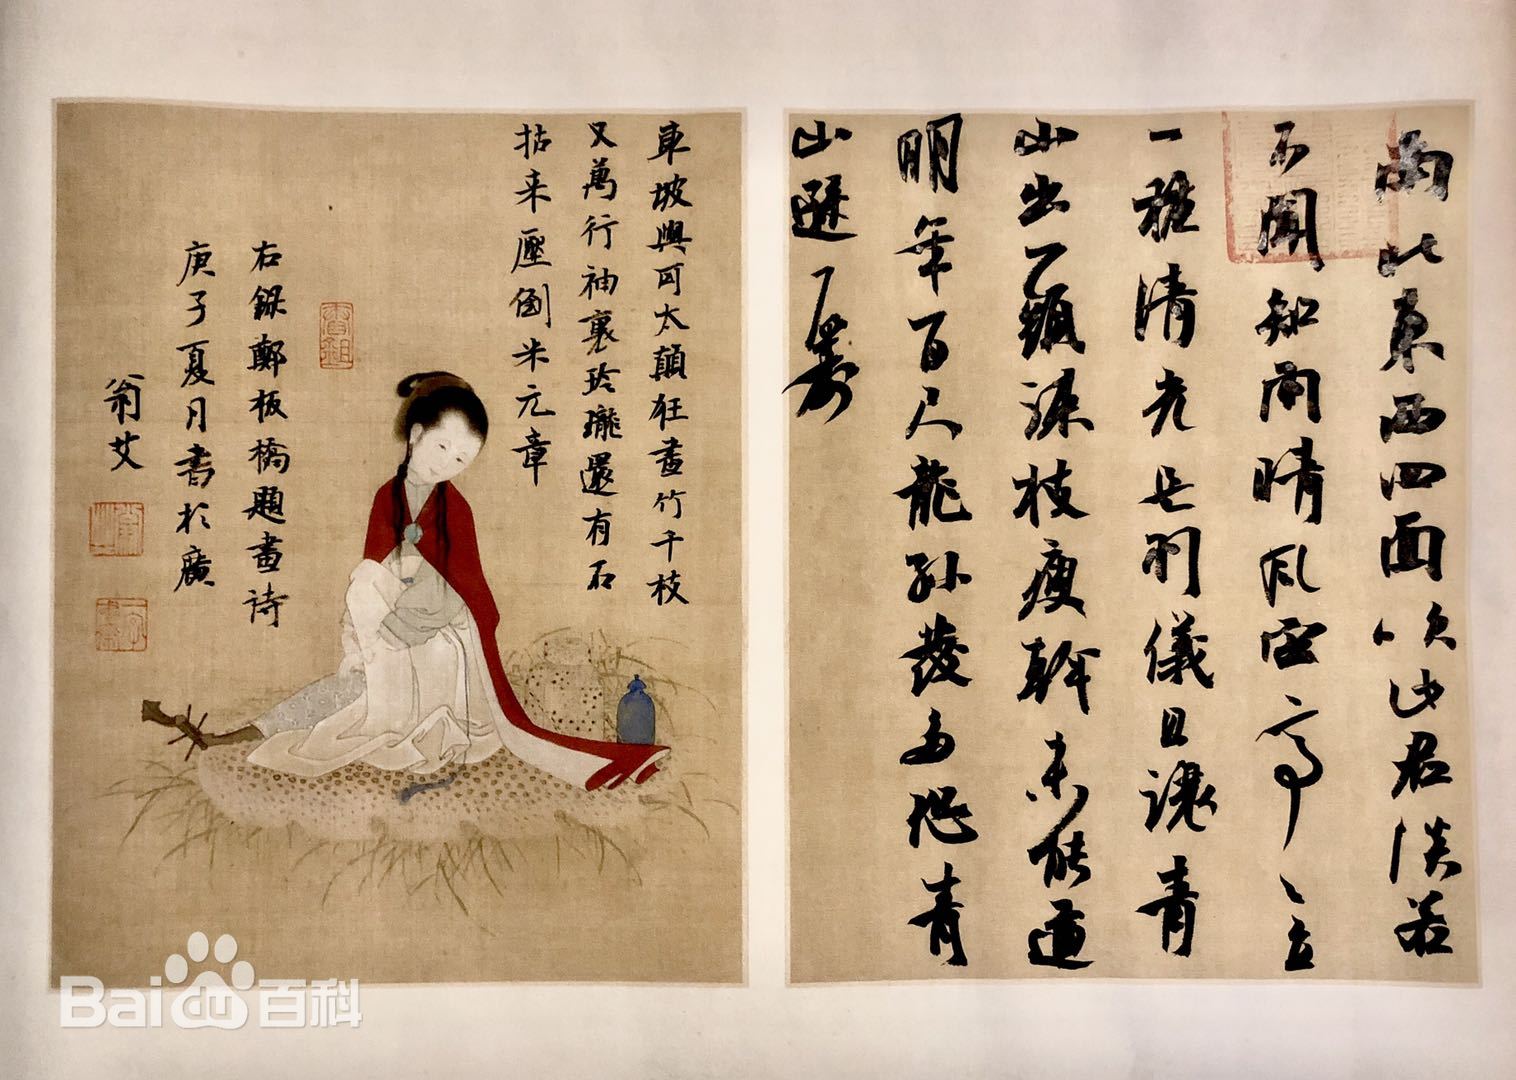 南北東西四面吹此君淡若
不聞知雨晴風雪亭、立
一種清光是羽儀且讓青
山出一頭疎枝瘦幹未能遒
明年百尺龍孫發多恐青
山遜一籌
東坡與可太顛狂畫竹千枝
又萬行袖裏玲瓏還有石
拈来壓倒米元章
右錄鄭板橋題畫詩
庚子夏月書於廣
翁艾
Baidu百科